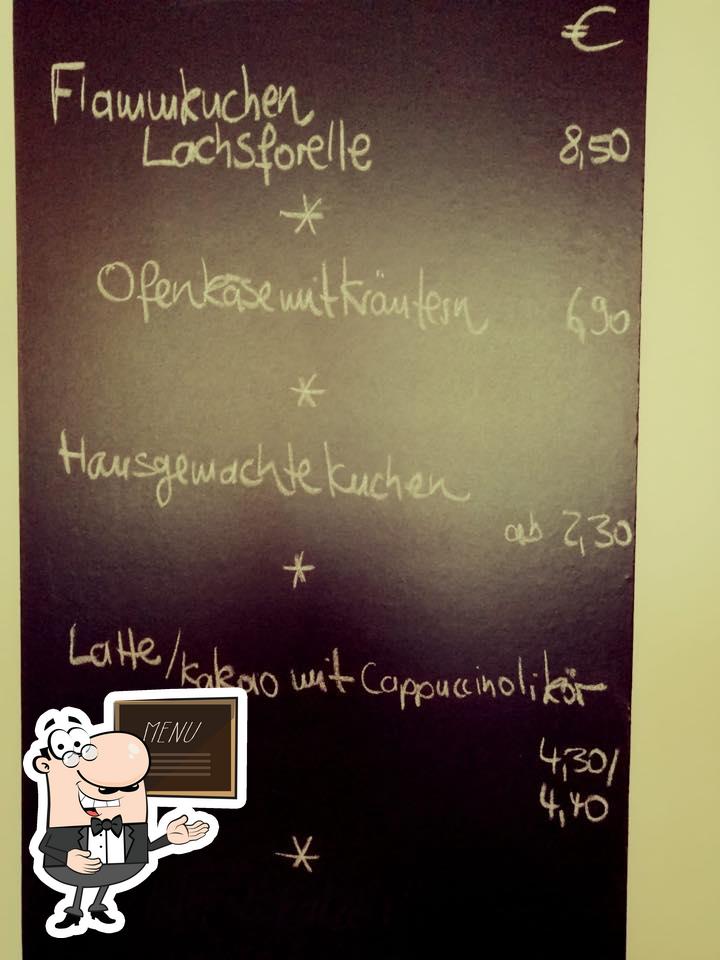 €
Flammkuchen
Lachsforelle 8,50
*
Ofenkäse mit Kräutern 6,90
*
Hausgemachte Kuchen
ab 2,30
*
Latte/Kakao mit Cappuccinolikör
4,30/
4,40
*
MENU